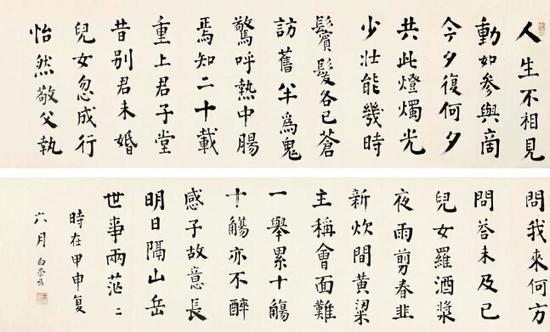 人生不相見
動如參與商
今夕復何夕
共此燈燭光
少壯能幾時
鬢髮各已蒼
訪舊半爲鬼
驚呼熱中腸
焉知二十載
重上君子堂
昔別君未婚
兒女忽成行
怡然敬父執
問我來何方
問答未及已
兒女羅酒漿
夜雨剪春韭
新炊間黃粱
主稱會面難
一舉累十觴
十觴亦不醉
感子故意長
明日隔山岳
世事兩茫〻
時在甲申复
六月 白崇禧